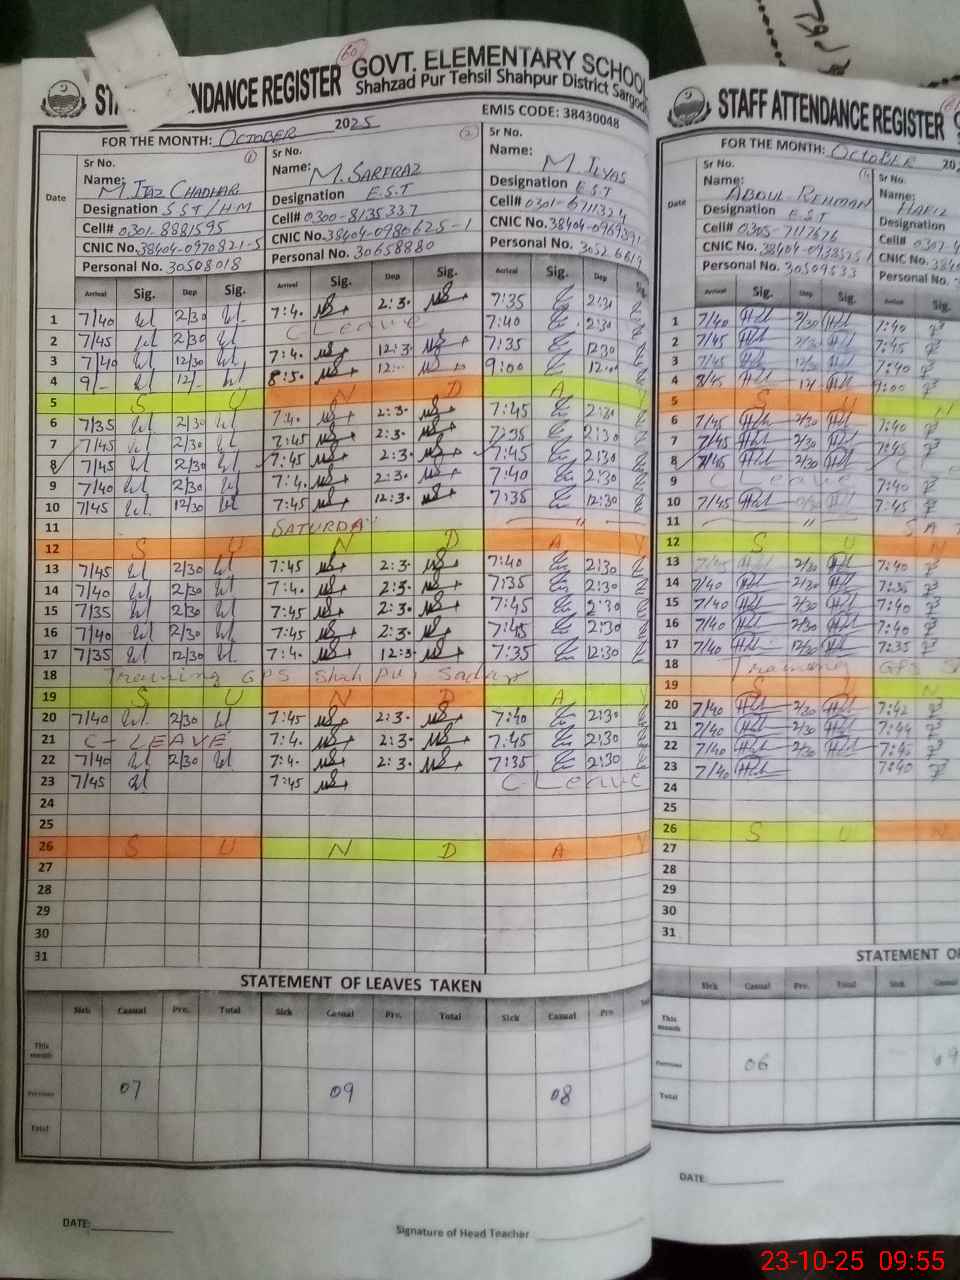 STA NDANCE REGISTER GOVT. ELEMENTARY SCHOOL
60
Shahzad Pur Tehsil Shahpur District Sargod
FOR THE MONTH: OCTOBER 2025 EMIS CODE: 38430048
Sr No. 1 Sr No. 2 Sr No.
Date Name: M IJAZ CHADHAR Name: M. SARFRAZ Name: M ILYAS
Designation SST/HM Designation E.S.T Designation E S T
Cell# 0301-8881595 Cell# 0300-8135337 Cell# 0301-6711324
CNIC No. 38404-0970821-5 CNIC No. 38404-0980625-1 CNIC No. 38404-0969891
Personal No. 30508018 Personal No. 30658880 Personal No.
Arrival Sig. Dep Sig. Arrival Sig. Dep Sig. Arrival Sig. Dep Sig.
1 7/40 2/30 7:4. 2:3. 7:35 2:30
2 7/45 2/30 C Leave 7:40 2:30
3 7/40 12/30 7:4. 12:3. 7:35 12:30
4 9/- 12/- 8:5. 12:.. 9:00 12:00
5 S U N D A Y
6 7/35 2/30 7:4. 2:3. 7:45 2:30
7 7/45 2/30 7:45 2:3. 7:35 2:30
8 7/45 2/30 7:45 2:3. 7:45 2:30
9 7/40 2/30 7:4. 2:3. 7:40 2:30
10 7/45 12/30 7:45 12:3. 7:35 12:30
11 SATURDAY "
12 S U N D A Y
13 7/45 2/30 7:45 2:3. 7:40 2:30
14 7/40 2/30 7:4. 2:3. 7:35 2:30
15 7/35 2/30 7:45 2:3. 7:45 2:30
16 7/40 2/30 7:45 2:3. 7:45 2:30
17 7/35 12/30 7:4. 12:3. 7:35 12:30
18 Training GPS Shah pur Sadar
19 S U N D A Y
20 7/40 2/30 7:45 2:3. 7:40 2:30
21 C-LEAVE 7:4. 2:3. 7:45 2:30
22 7/40 2/30 7:4. 2:3. 7:35 2:30
23 7/45 7:45 C Leave
24
25
26 S U N D A Y
27
28
29
30
31
STATEMENT OF LEAVES TAKEN
Sick Casual Prv. Total Sick Casual Prv. Total Sick Casual Prv
This month
Previous 07 09 08
Total
DATE: Signature of Head Teacher
STAFF ATTENDANCE REGISTER
FOR THE MONTH: OCTOBER 202
Sr No.
Date Name: ABDUL REHMAN Name: HAFIZ
Designation E.S.T Designation
Cell# 0305-7117676 Cell#
CNIC No. CNIC No.
Personal No. 30509533 Personal No.
Arrival Sig. Dep Sig. Arrival Sig.
1 7/40 2/30 7:40
2 7/45 2/30 7:45
3 7/45 12/30 7:40
4 8/45 12/ 9:00
5 S U N
6 7/45 2/30 7:40
7 7/45 2/30 7:45
8 7/45 2/30 C L e
9 C Leave 7:40
10 7/45 7:45
11 " S A T
12 S U N
13 7/45 2/30 7:40
14 7/40 2/30 7:35
15 7/40 2/30 7:40
16 7/40 2/30 7:40
17 7/40 12/30 7:35
18 Training GPS S
19 S U N
20 7/40 2/30 7:42
21 7/40 2/30 7:44
22 7/40 2/30 7:45
23 7/40 7:40
24
25
26 S U N
27
28
29
30
31
STATEMENT OF
Sick Casual Prv. Total Sick Casual
This month
Previous 06 09
Total
DATE:
23-10-25 09:55